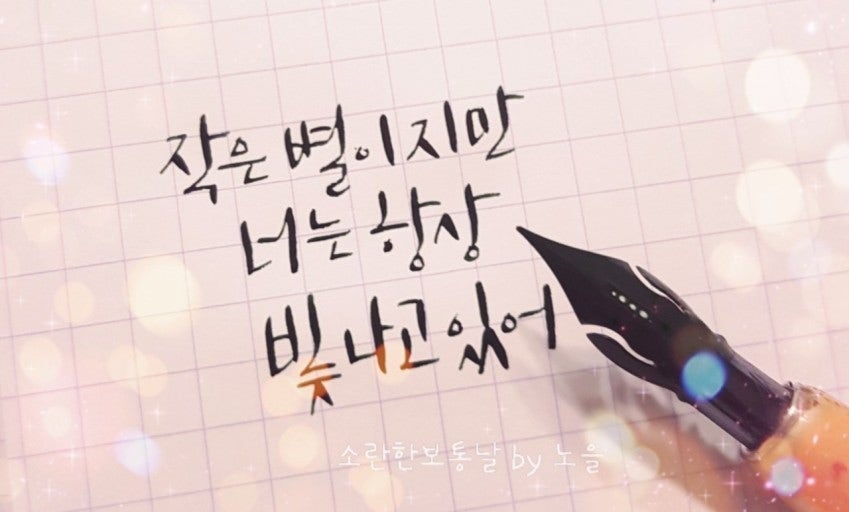 작은 별이지만
너는 항상
빛나고 있어
소란한보통날 by 노을